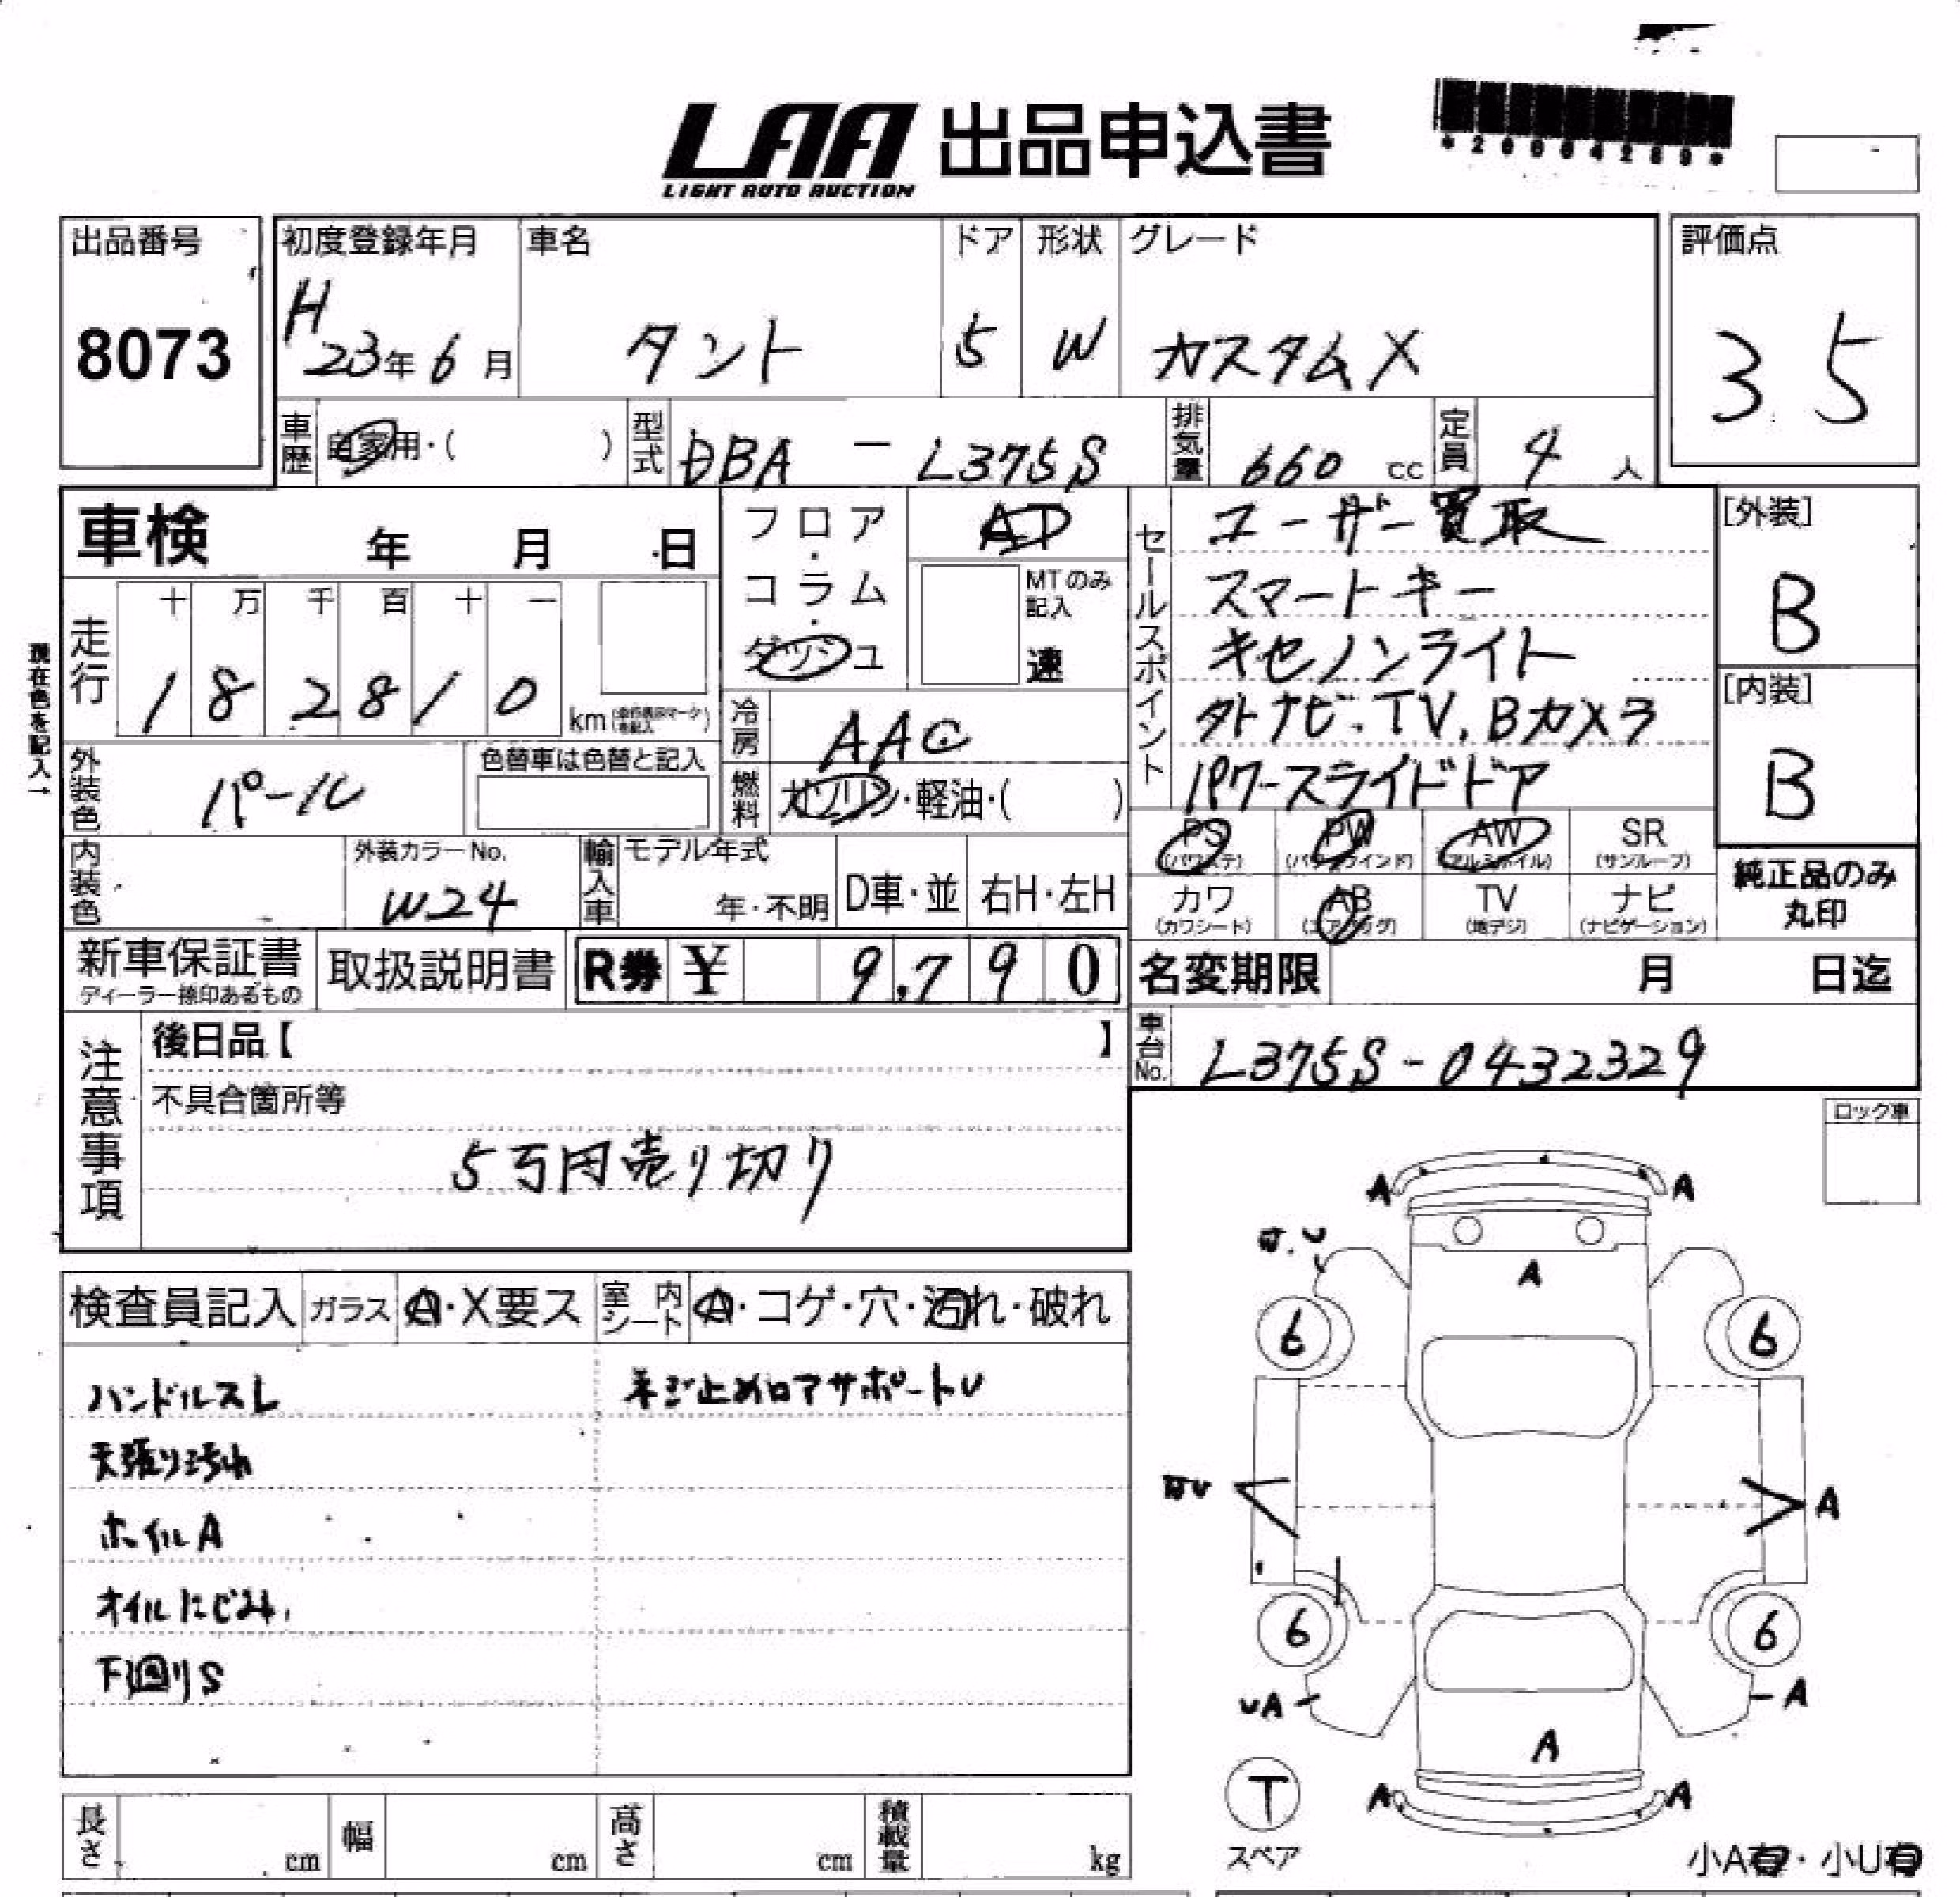 LAA 出品申込書
LIGHT AUTO AUCTION
*20004289*
出品番号
8073
初度登録年月
H23年6月
車名
タント
ドア
5
形状
W
グレード
カスタムX
評価点
3.5
車歴
自家用・( )
型式
DBA - L375S
排気量
660 cc
定員
4 人
車検 年 月 日
フロア・コラム・ダッシュ
AT
MTのみ記入
速
現在色を記入→
走行
十 万 千 百 十 一
1 8 2 8 1 0 km
冷房
AAC
外装色
パール
色替車は色替と記入
燃料
ガソリン・軽油・( )
内装色
外装カラーNo.
W24
輸入車
モデル年式
年・不明
D車・並
右H・左H
セールスポイント
ユーザー買取
スマートキー
キセノンライト
外ナビ.TV.Bカメラ
パワースライドドア
[外装]
B
[内装]
B
PS PW AW SR
(パワステ) (パワーウインド) (アルミホイル) (サンルーフ)
カワ AB TV ナビ
(カワシート) (エアバッグ) (地デジ) (ナビゲーション)
純正品のみ
丸印
新車保証書
ディーラー捺印あるもの
取扱説明書
R券 ¥ 9,790
名変期限 月 日迄
車台No.
L375S-0432329
注意事項
後日品【 】
不具合箇所等
5万円売り切り
ロック車
検査員記入
ガラス
A・X要ス
室内シート
A・コゲ・穴・汚れ・破れ
ハンドルスレ
ネジ止めロアサポートU
天張り汚れ
ホイルA
オイルにじみ
下回りS
A A
A
6 6
A
6 6
UA A
A
T
A A
スペア
小A有・小U有
長さ cm
幅 cm
高さ cm
積載量 kg